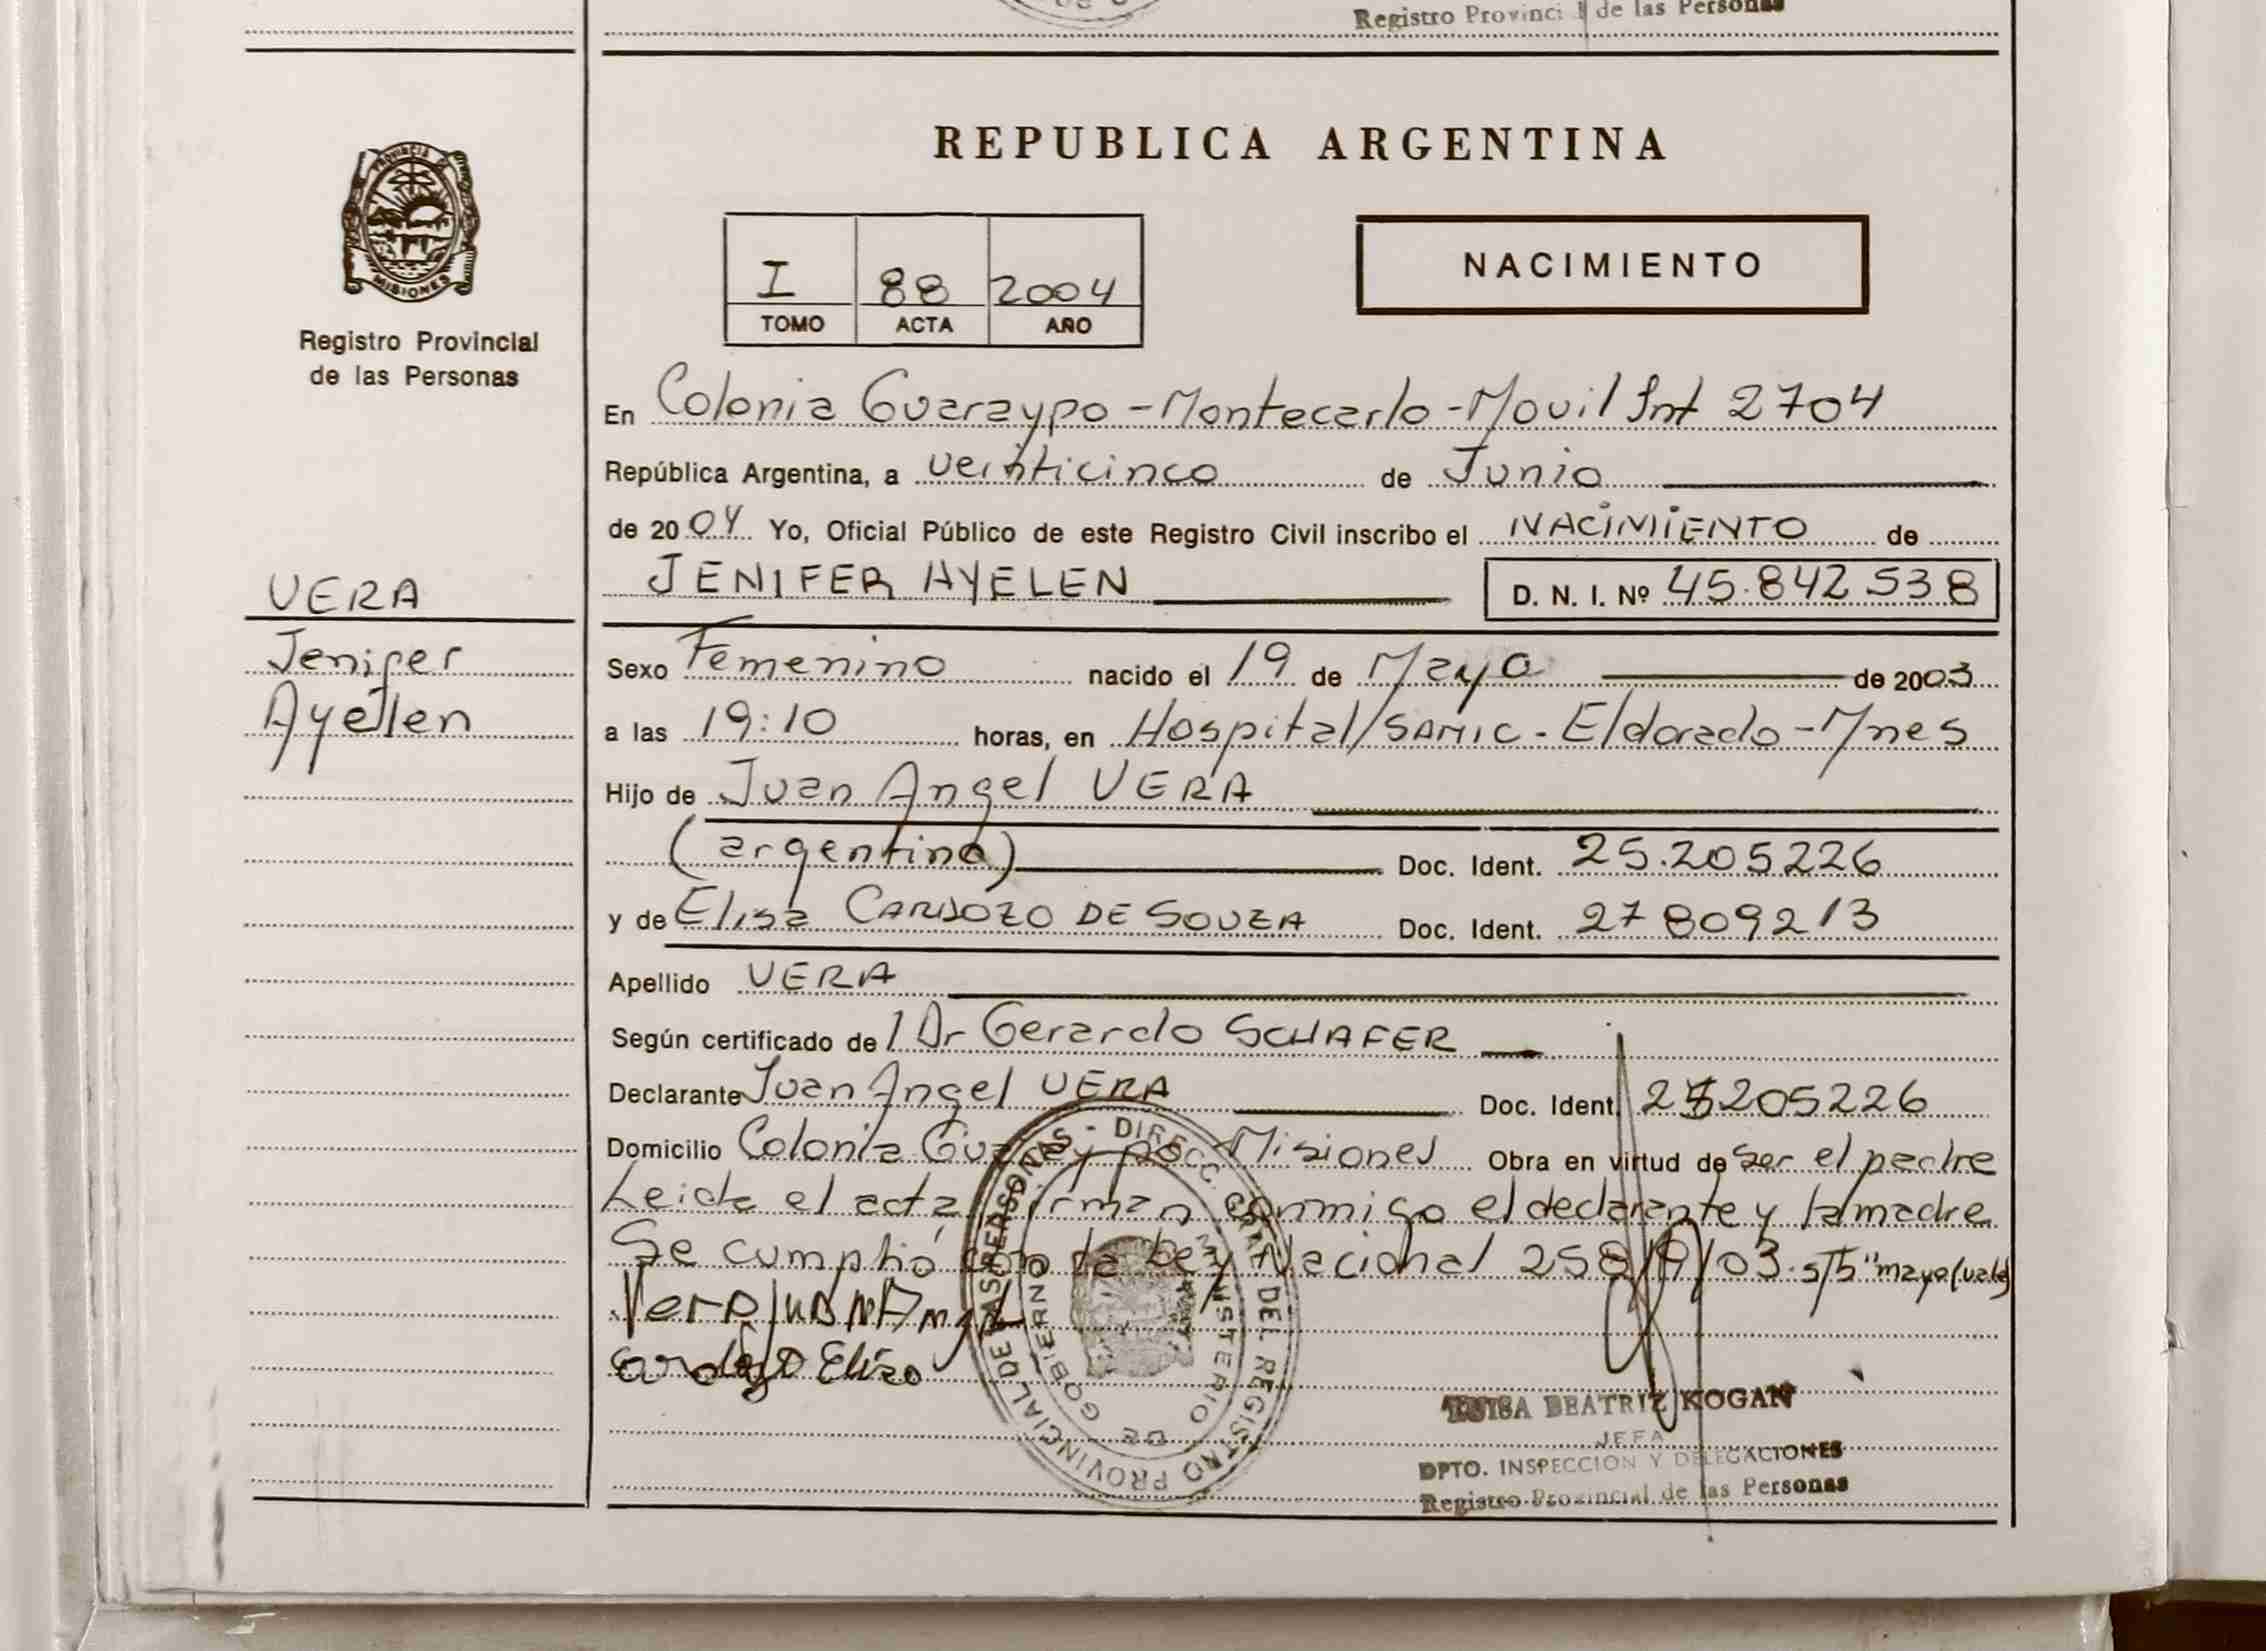 Registro Provinci l de las Personas
REPUBLICA ARGENTINA
PROVINCIA DE
MISIONES
Registro Provincial
de las Personas
I 88 2004
TOMO ACTA AÑO
NACIMIENTO
En Colonia Guaraypo - Montecarlo - Movil Int 2704
República Argentina, a veinticinco de Junio
de 2004 Yo, Oficial Público de este Registro Civil inscribo el NACIMIENTO de
VERA
JENIFER AYELEN D. N. I. Nº 45.842.538
Jenifer
Sexo Femenino nacido el 19 de Mayo de 2003
Ayelen
a las 19:10 horas, en Hospital/SAMIC - Eldorado - Mnes
Hijo de Juan Angel VERA
(argentino) Doc. Ident. 25.205226
y de Elisa CARDOZO DE SOUZA Doc. Ident. 27809213
Apellido VERA
Según certificado de l Dr Gerardo SCHAFER
Declarante Juan Angel VERA Doc. Ident. 25205226
Domicilio Colonia Guaraypo Misiones Obra en virtud de ser el padre
Leida el acta, firman conmigo el declarante y la madre
Se cumplió con la Ley Nacional 25819/03. s/b "mayo (vale)
Vera Juan Angel
Cardozo Elisa
REGISTRO PROVINCIAL DE LAS PERSONAS - DIRECC. GRAL DEL
MINISTERIO DE GOBIERNO
LUISA BEATRIZ KOGAN
JEFA
DPTO. INSPECCION Y DELEGACIONES
Registro Provincial de las Personas